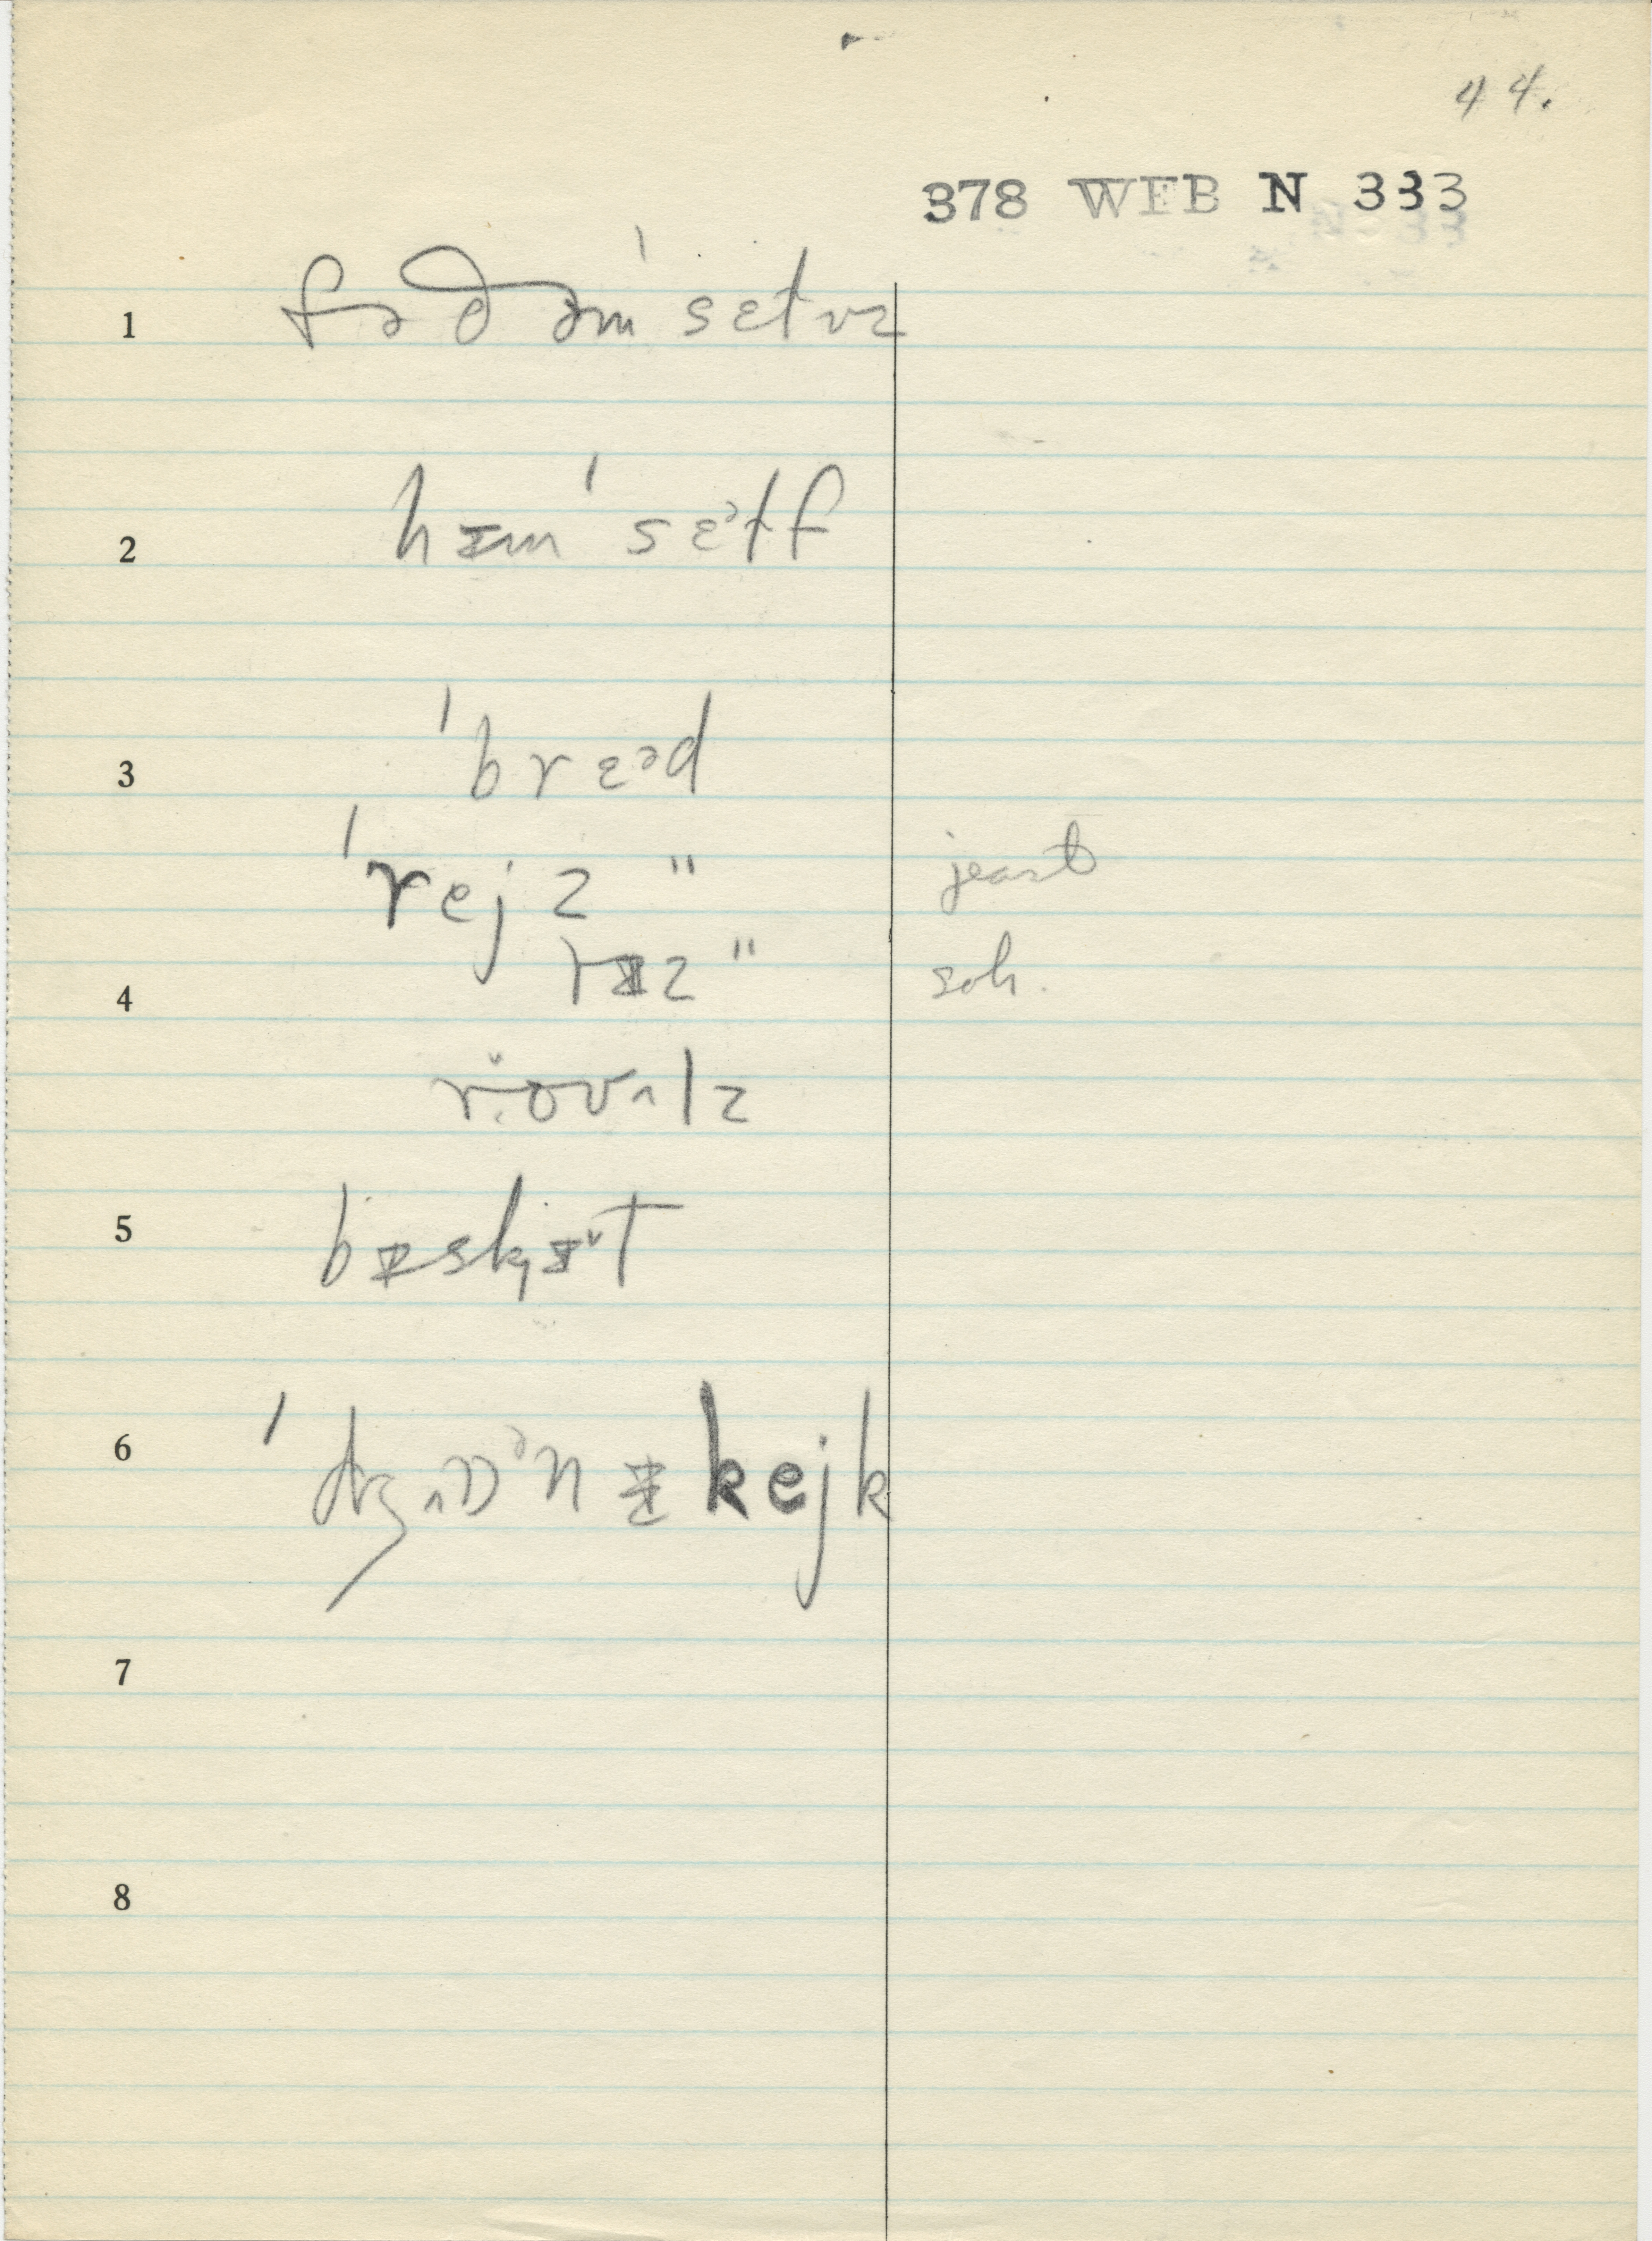 44.
378 WEB N 333
1 fəðəmˈsɛɫvz
2 hɪmˈsɛᵊɫf
3 ˈbrɛᵊd
ˈrejz " jeast
4 rɪz " soh.
5 bɪskɪ̯ɪˇt
6 ˈdʒɒᵊnɪkejk
7
8